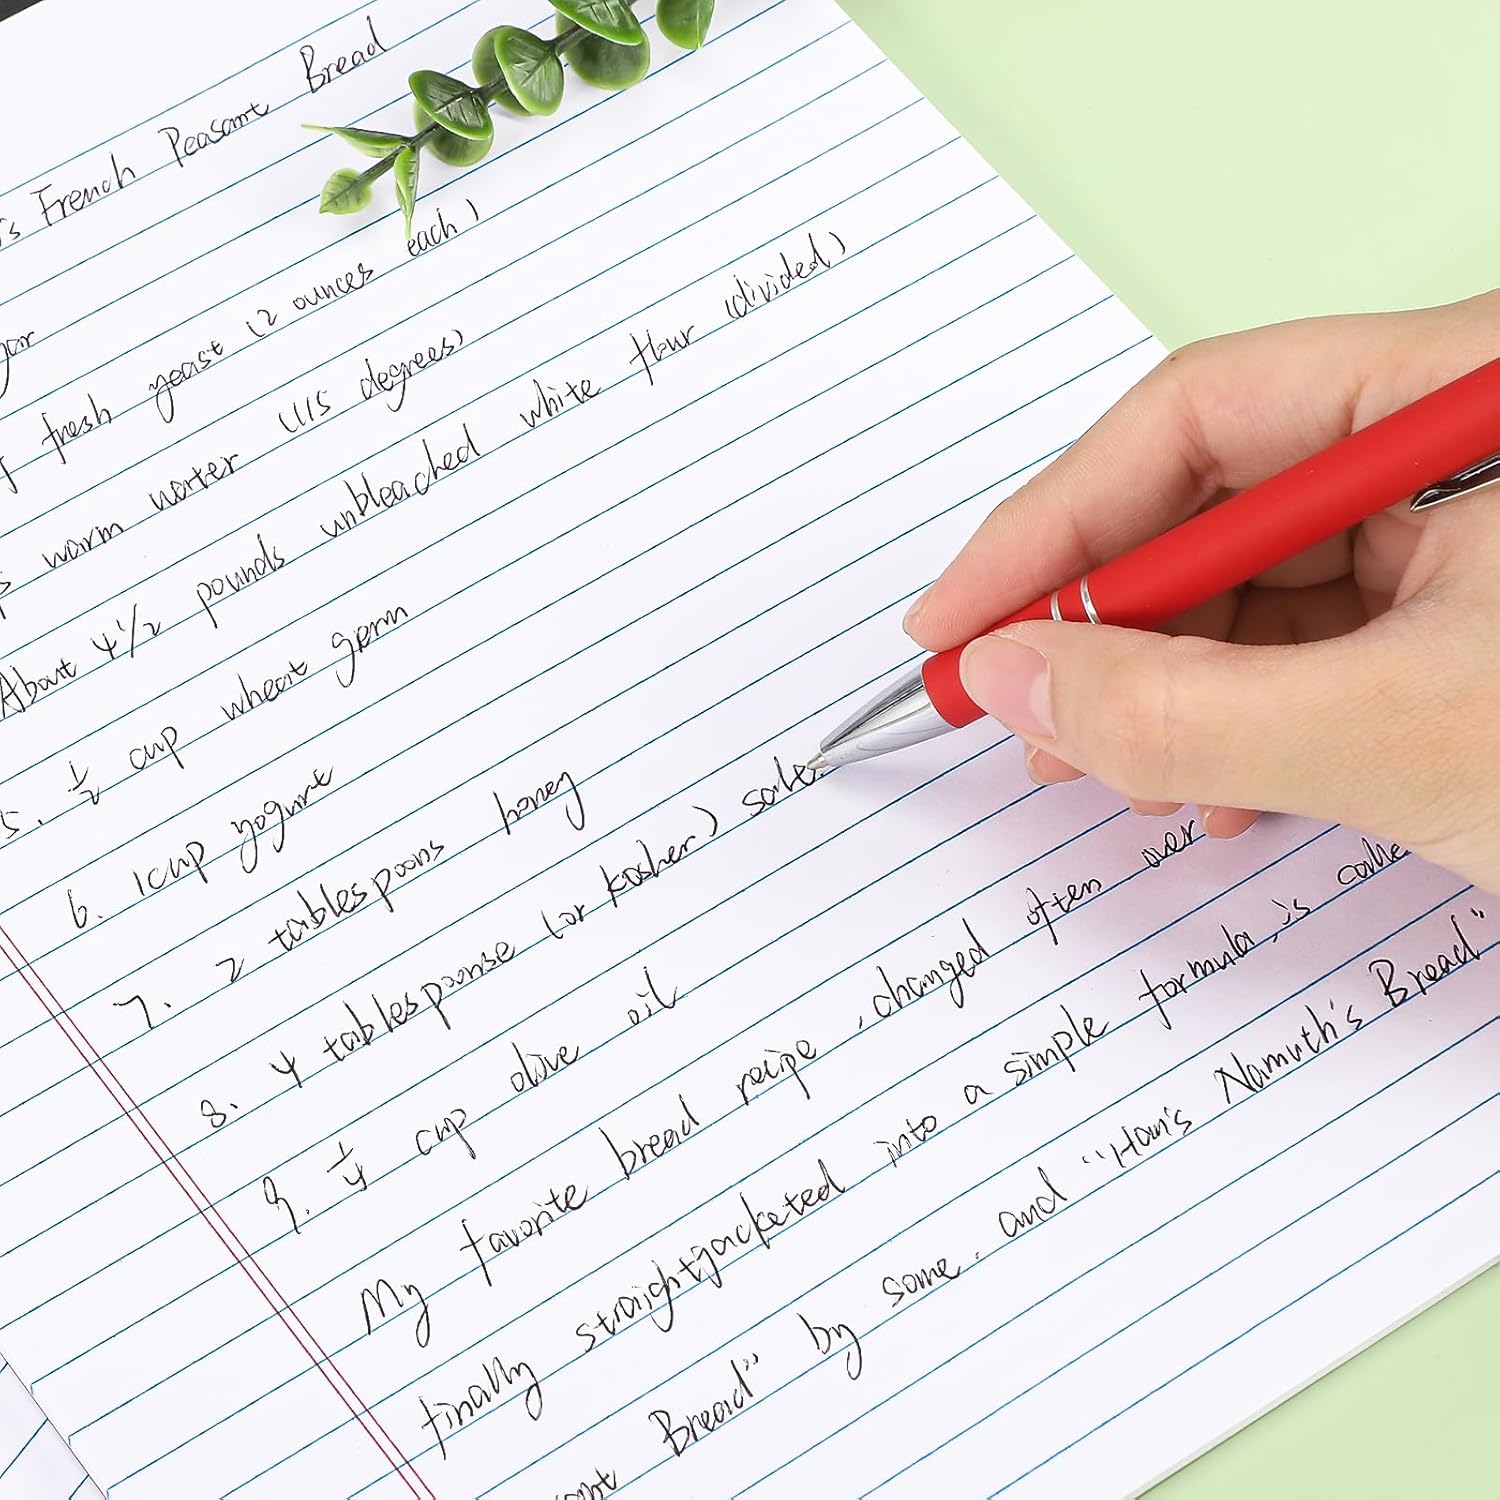 's French Peasant Bread
fresh yeast (2 ounces each)
warm water (115 degrees)
About 4 1/2 pounds unbleached white flour (divided)
5. 1/2 cup wheat germ
6. 1 cup yogurt
7. 2 tablespoons honey
8. 4 tablesponse (or kosher) salt
9. 1/4 cup olive oil
My favorite bread recipe, changed often over
finally straightjacketed into a simple formula, is
Bread" by some. and "Han's Namuth's Bread"